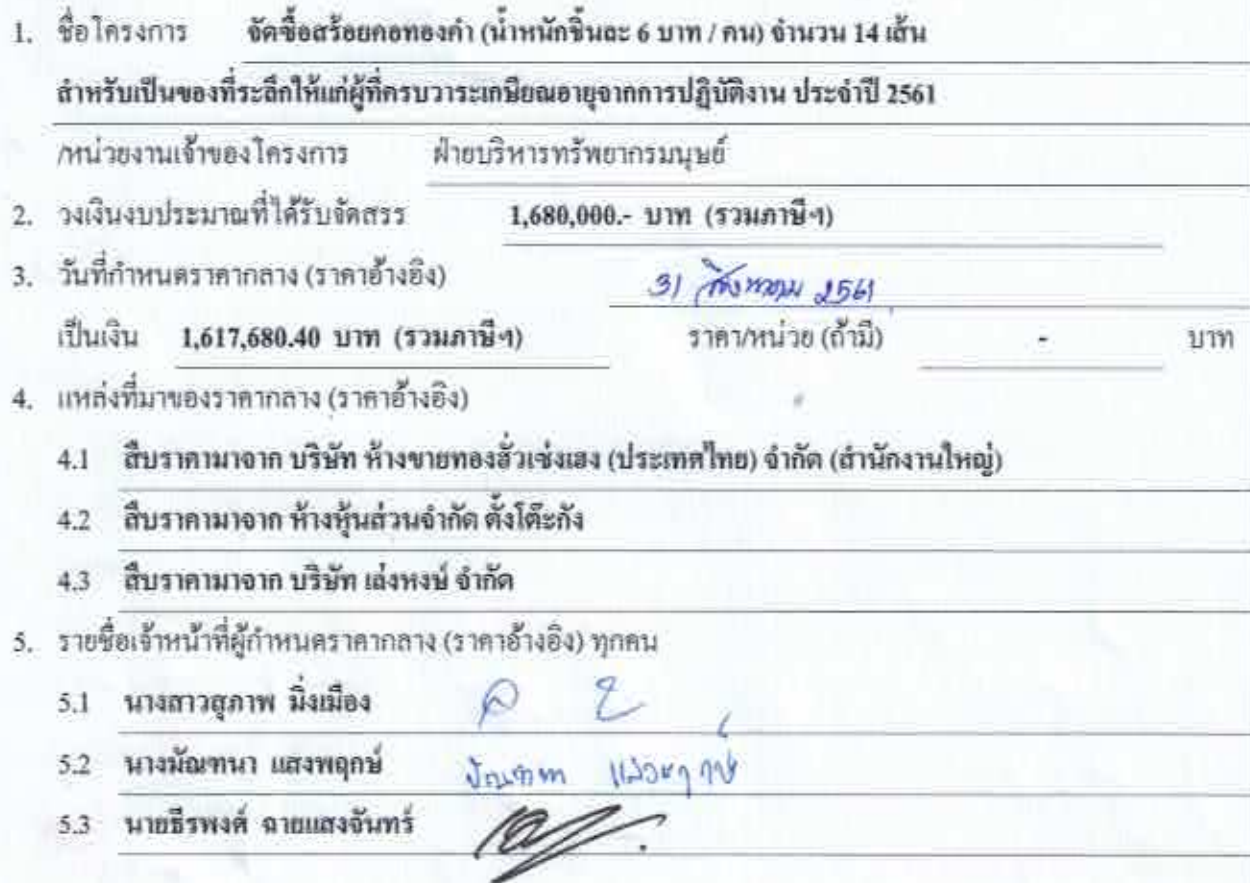 1. ชื่อโครงการ จัดซื้อสร้อยคอทองคำ (น้ำหนักชิ้นละ 6 บาท / คน) จำนวน 14 เส้น
สำหรับเป็นของที่ระลึกให้แก่ผู้ที่ครบวาระเกษียณอายุจากการปฏิบัติงาน ประจำปี 2561
/หน่วยงานเจ้าของโครงการ ฝ่ายบริหารทรัพยากรมนุษย์
2. วงเงินงบประมาณที่ได้รับจัดสรร 1,680,000.- บาท (รวมภาษีฯ)
3. วันที่กำหนดราคากลาง (ราคาอ้างอิง) 31 สิงหาคม 2561
เป็นเงิน 1,617,680.40 บาท (รวมภาษีฯ) ราคา/หน่วย (ถ้ามี) - บาท
4. แหล่งที่มาของราคากลาง (ราคาอ้างอิง)
4.1 สืบราคามาจาก บริษัท ห้างขายทองฮั่วเซ่งเฮง (ประเทศไทย) จำกัด (สำนักงานใหญ่)
4.2 สืบราคามาจาก ห้างหุ้นส่วนจำกัด ตั้งโต๊ะกัง
4.3 สืบราคามาจาก บริษัท เล่งหงษ์ จำกัด
5. รายชื่อเจ้าหน้าที่ผู้กำหนดราคากลาง (ราคาอ้างอิง) ทุกคน
5.1 นางสาวสุภาพ มิ่งเมือง
5.2 นางมัณฑนา แสงพฤกษ์ มัณฑนา แสงพฤกษ์
5.3 นายธีรพงศ์ ฉายแสงจันทร์